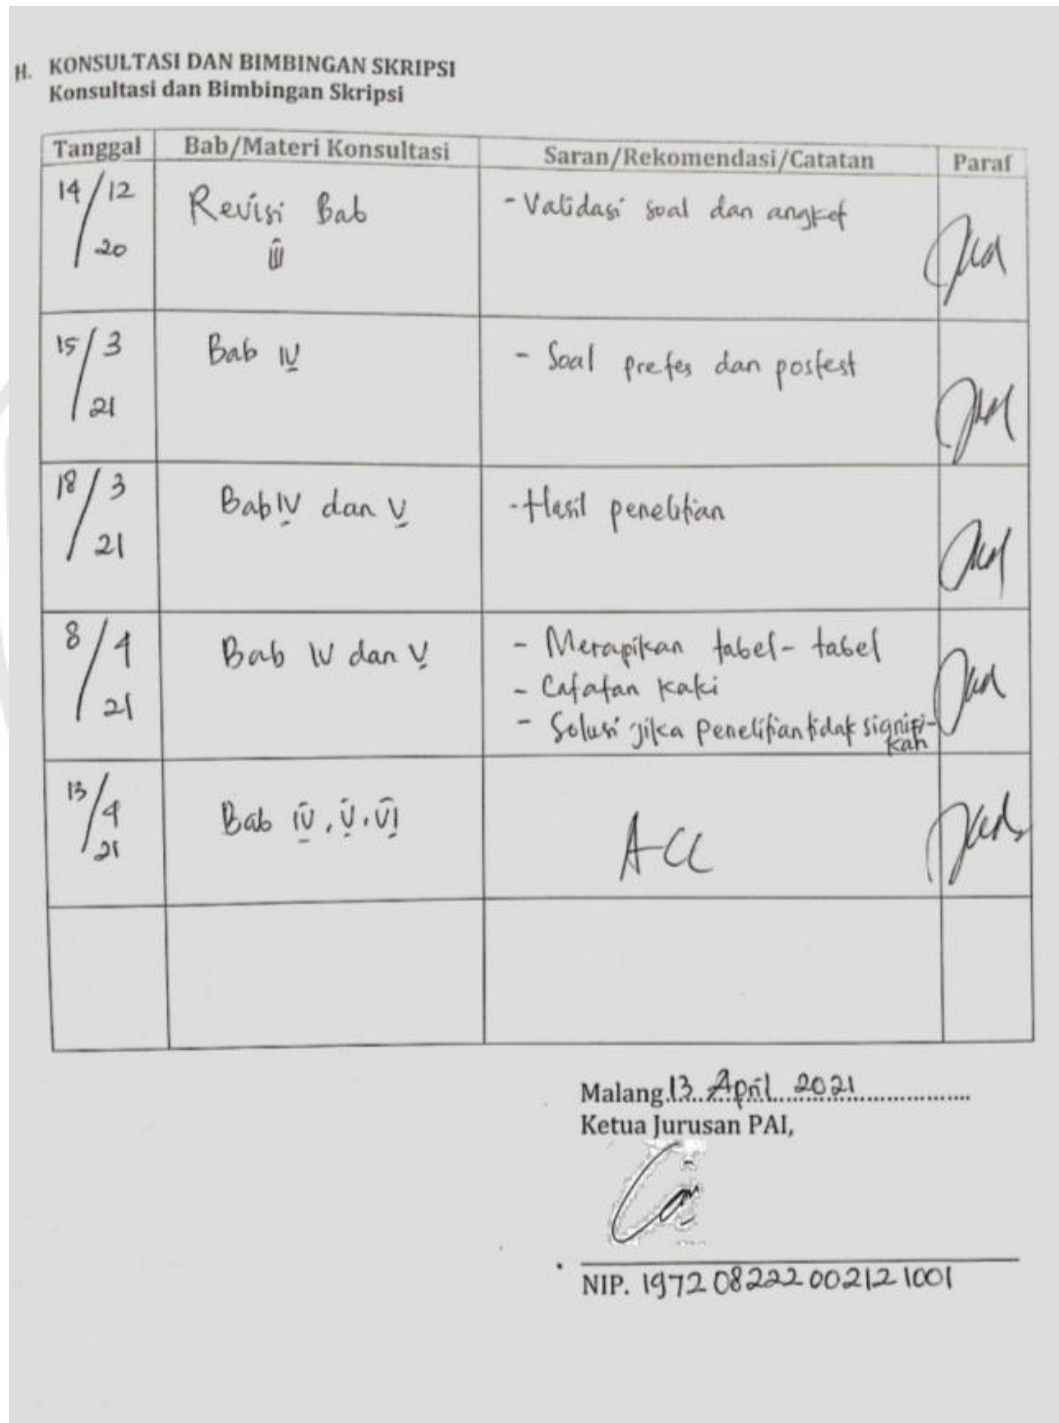 H. KONSULTASI DAN BIMBINGAN SKRIPSI
Konsultasi dan Bimbingan Skripsi
Tanggal Bab/Materi Konsultasi Saran/Rekomendasi/Catatan Paraf
14/12 20 Revisi Bab III - Validasi soal dan angket
15/3 21 Bab IV - Soal pretes dan postest
18/3 21 Bab IV dan V - Hasil penelitian
8/4 21 Bab IV dan V - Merapikan tabel-tabel
- Catatan kaki
- Solusi jika penelitian tidak signifi-
kan
13/4 21 Bab IV, V, VI ACC
Malang, 13 April 2021
Ketua Jurusan PAI,
NIP. 197208222002121001